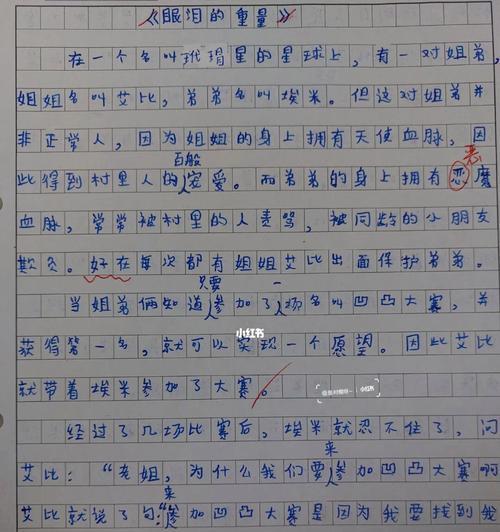 《眼泪的重量》
在一个名叫玳瑁星的星球上，有一对姐弟，
姐姐名叫艾比，弟弟名叫埃米。但这对姐弟并
非正常人，因为姐姐的身上拥有天使血脉，因
百般
此得到村里人的宠爱。而弟弟的身上拥有恋魔
恶
血脉，常常被村里的人责骂，被同龄的小朋友
欺负。好在每次都有姐姐艾比出面保护弟弟。
只要 一
当姐弟俩知道参加了场名叫凹凸大赛，并
获得第一名，就可以实现一个愿望。因此艾比
小红书
就带着埃米参加了大赛。
小红书
经过了几场比赛后，埃米就忍不住了，问
来
艾比：“老姐，为什么我们要参加凹凸大赛啊
来
艾比就说了句：“参加凹凸大赛是因为我要找到我